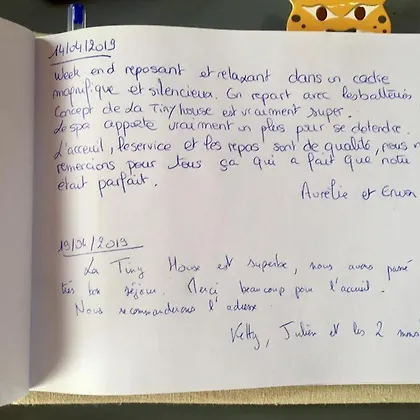 14/04/2019
Week end reposant et relaxant dans un cadre
magnifique et silencieux. On repart avec les batteries
Concept de la Tiny house est vraiment super.
Le spa apporte vraiment un plus pour se détendre.
L'acceuil, le service et les repas sont de qualité, nous
remercions pour tous ça qui a fait que notre
était parfait.
Aurélie et Erwan
19/04/2019
La Tiny House est superbe, nous avons passé
très bon séjour. Merci beaucoup pour l'accueil.
Nous recommanderons l'adresse.
Ketty, Julien et les 2